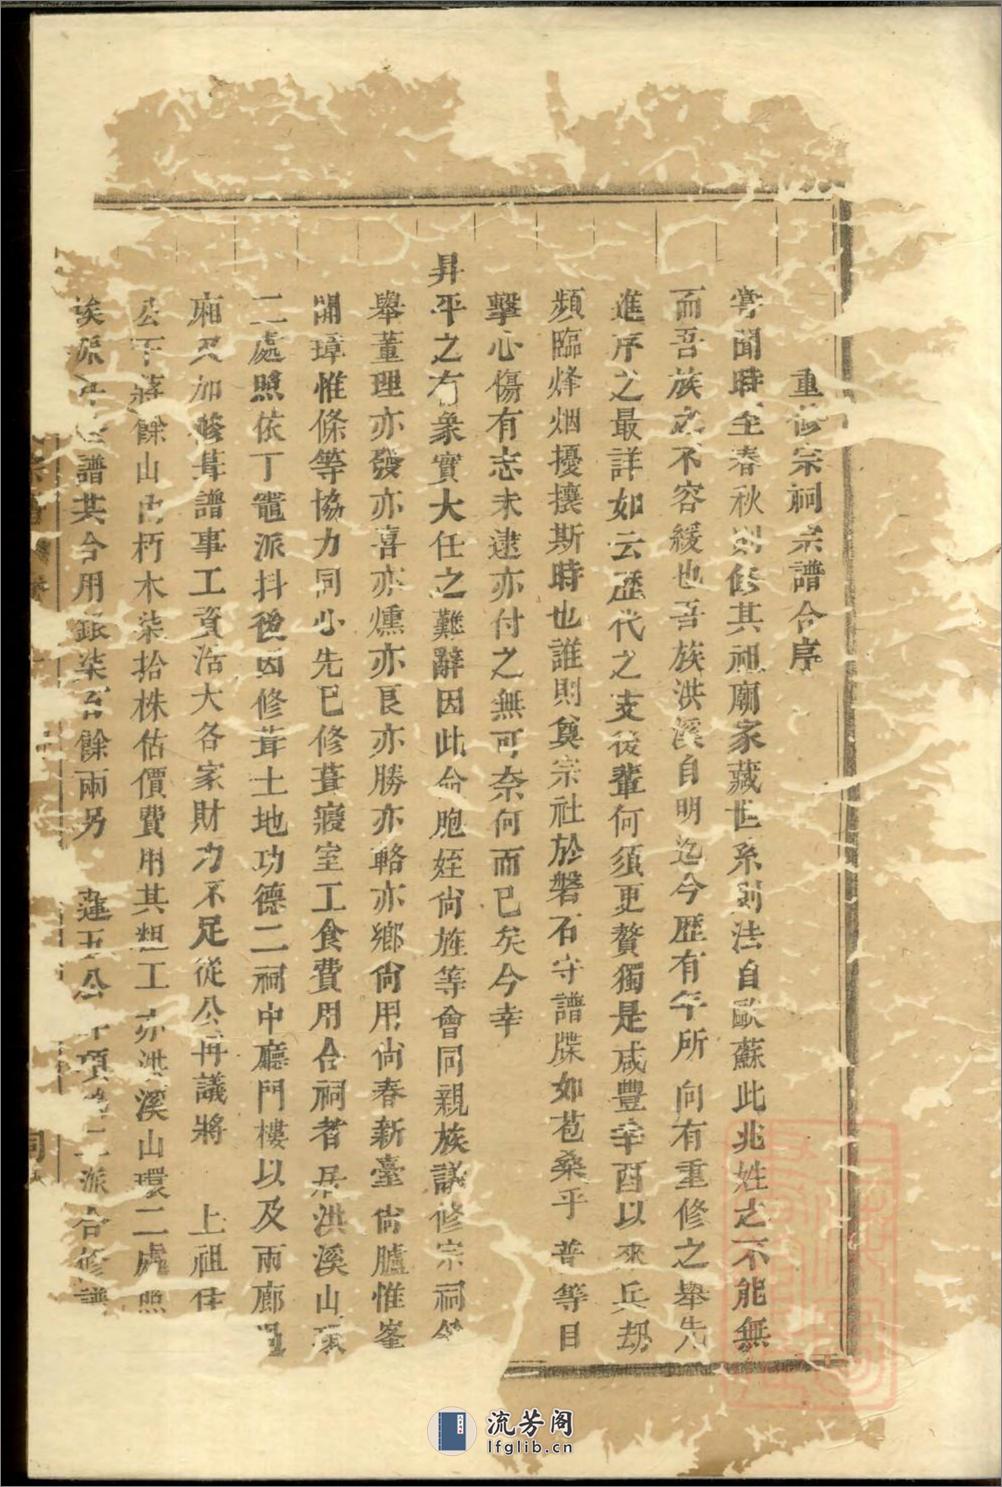 重修宗祠宗譜合序
嘗聞時至春秋則修其祖廟家藏世系則法自歐蘇此兆姓之不能無
而吾族之不容緩也吾族洪溪自明迄今歷有年所向有重修之舉先
進序之最詳如云歷代之支後輩何須更贅獨是咸豐辛酉以來兵刼
頻臨烽烟擾攘斯時也誰則奠宗社於磐石守譜牒如苞桑乎普等目
擊心傷有志未逮亦付之無可奈何而已矣今幸
昇平之有象實大任之難辭因此命胞姪尙旌等會同親族議修宗祠
舉董理亦發亦喜亦燻亦良亦勝亦輅亦鄉尙用尙春新臺尙臚惟峯
開璋惟條等協力同心先已修葺寢室工食費用合祠者居洪溪山環
二處照依丁竈派抖後因修葺土地功德二祠中廳門樓以及兩廊
廂又加修葺譜事工資浩大各家財力不足從公再議將 上祖
公下蔣餘山內朽木柒拾株估價費用其粗工亦洪溪山環二處照
譜共合用銀柒百餘兩另 蓮五公 項 二派合修譜
流芳阁
lfglib.cn